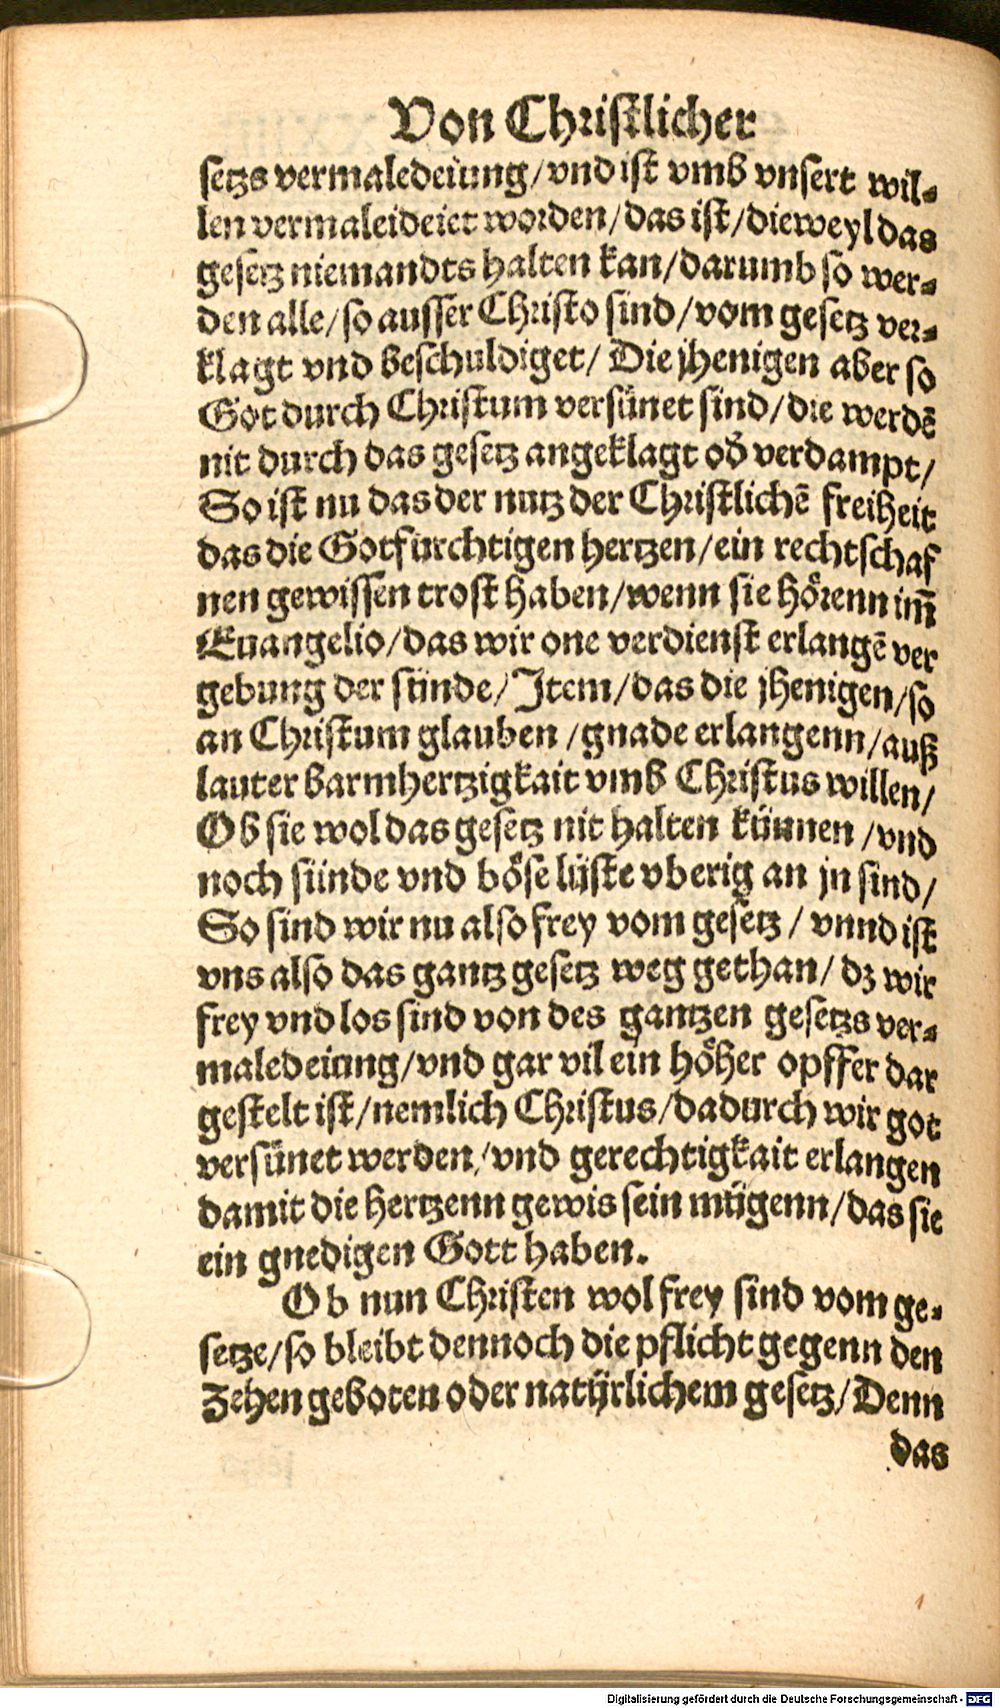 Von Christlicher
setzs vermaledeiung/vnd ist vmb vnsert wil-
len vermaleideiet worden/das ist/dieweyl das
gesetz niemandts halten kan/darumb so wer-
den alle/so ausser Christo sind/vom gesetz ver-
klagt vnd beschuldiget/ Die jhenigen aber so
Got durch Christum versünet sind/die werdẽ
nit durch das gesetz angeklagt od̓ verdampt/
So ist nu das der nutz der Christlichẽ freiheit
das die Gotfürchtigen hertzen/ein rechtschaf
nen gewissen trost haben/wenn sie hörenn im̃
Euangelio/das wir one verdienst erlangẽ ver
gebung der sünde/Item/das die jhenigen/so
an Christum glauben /gnade erlangenn/auß
lauter barmhertzigkait vmb Christus willen/
Ob sie wol das gesetz nit halten künnen /vnd
noch sünde vnd böse lüste vberig an jn sind/
So sind wir nu also frey vom gesetz / vnnd ist
vns also das gantz gesetz weg gethan/ dz wir
frey vnd los sind von des gantzen gesetzs ver-
maledeiung/vnd gar vil ein höher opffer dar
gestelt ist/nemlich Christus/dadurch wir got
versünet werden/vnd gerechtigkait erlangen
damit die hertzenn gewis sein mügenn/das sie
ein gnedigen Gott haben.
Ob nun Christen wol frey sind vom ge-
setze/so bleibt dennoch die pflicht gegenn den
Zehen geboten oder natürlichem gesetz/Denn
das
Digitalisierung gefördert durch die Deutsche Forschungsgemeinschaft - DFG